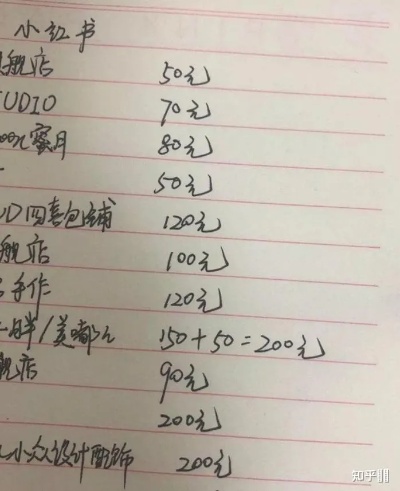 小红书
舰店 50元
UDIO 70元
蜜月 80元
50元
四喜包铺 120元
舰店 100元
手作 120元
/美嘟 150+50=200元
舰店 90元
200元
小众设计配饰 200元
知乎